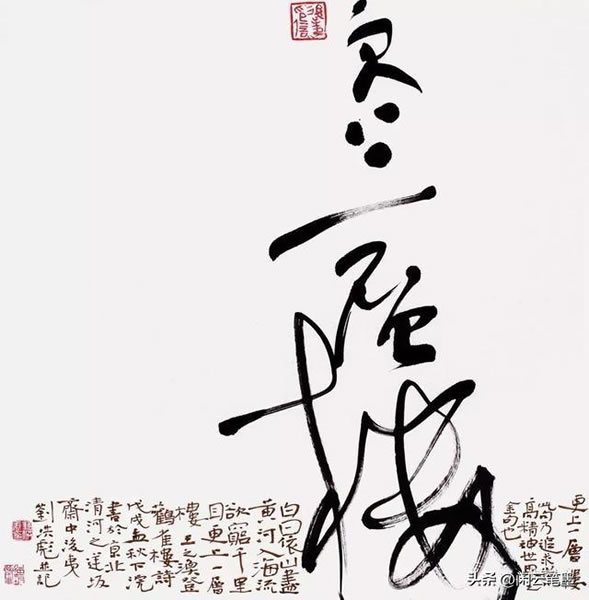 更上一层楼
更上一層楼
乃追求
高精神世界之
金句也
白日依山盡
黄河入海流
欲窮千里
目更上一層
樓 王之渙登
鸛雀樓詩
戊戌孟秋下浣
書於京北
清河之
齋中
劉洪彪並記
头条 @闲云笔墨